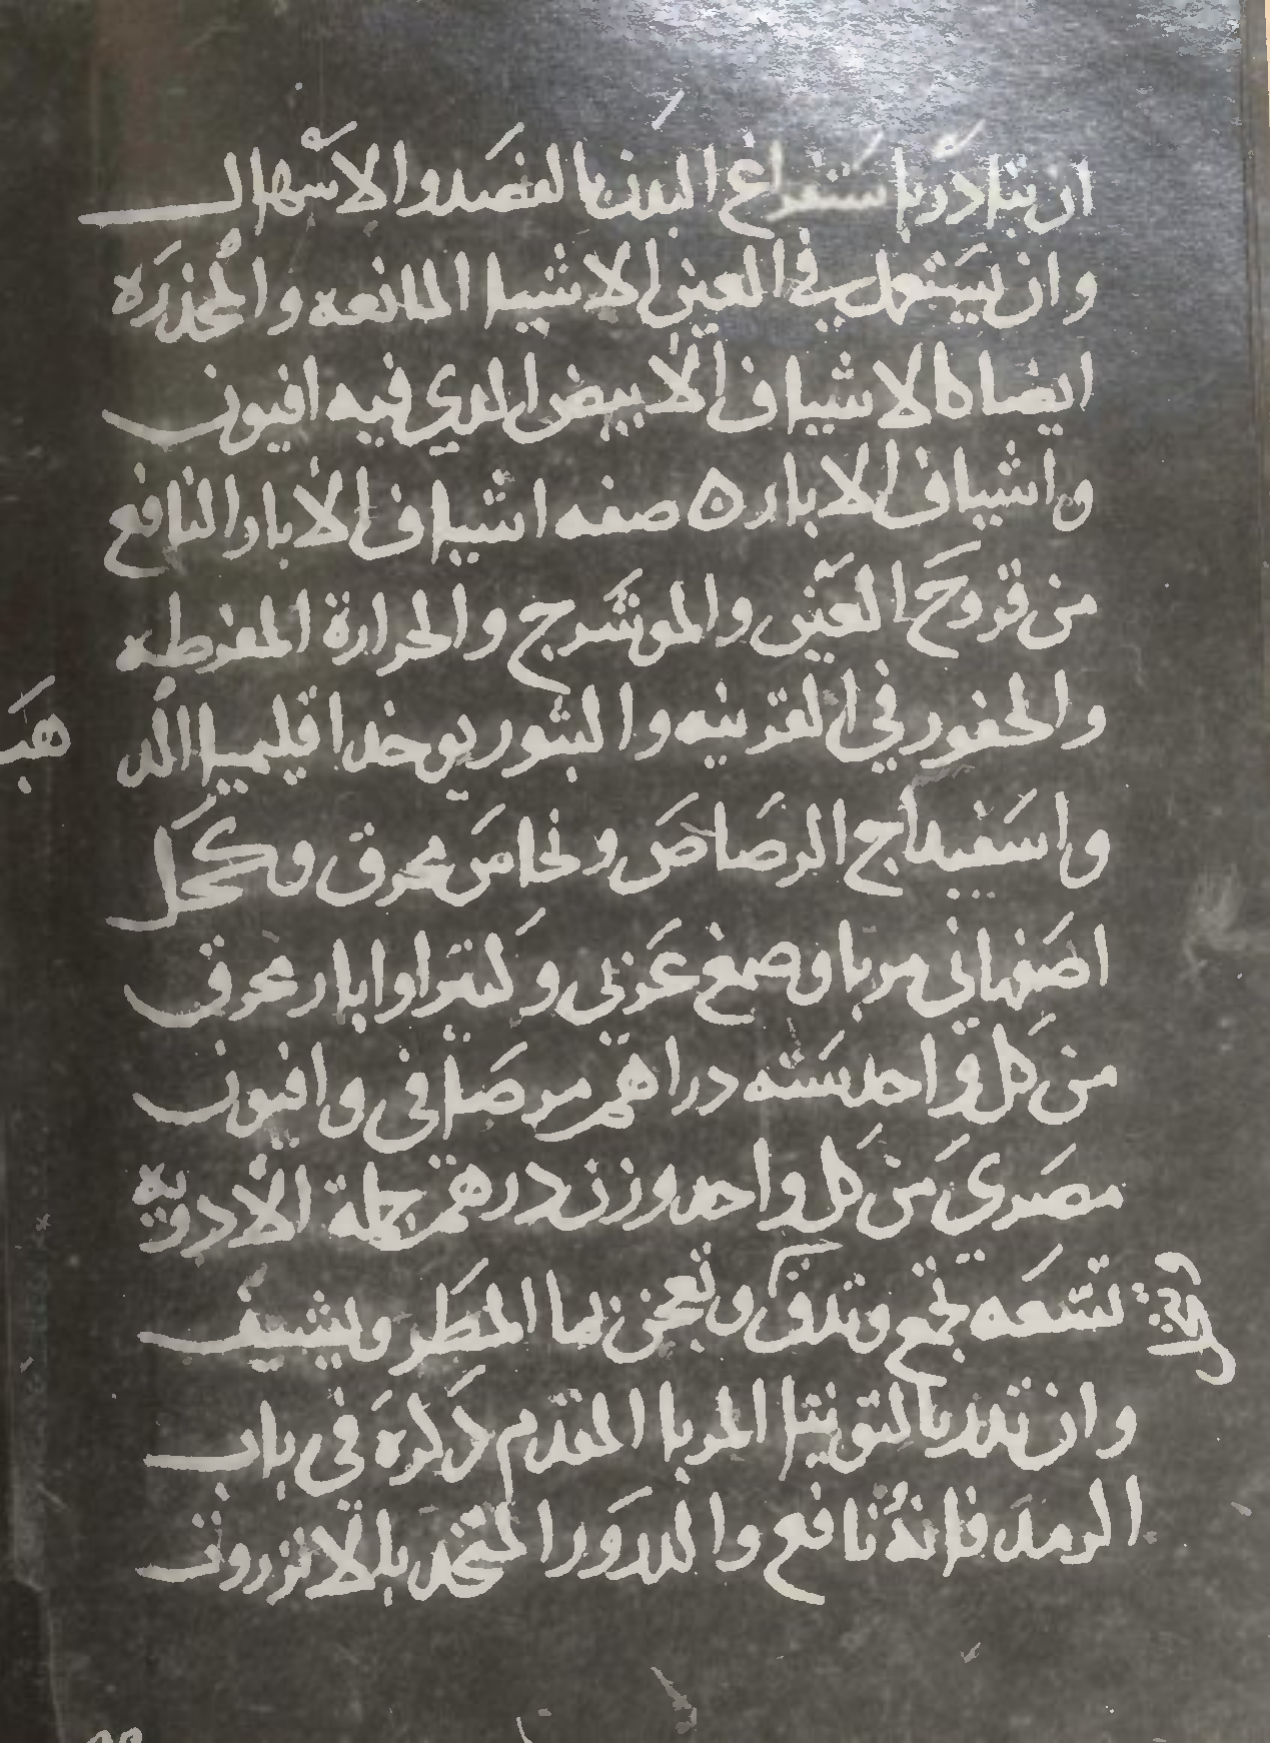 ان يبادر باستفراغ البدن بالفصد والاسهال
وان يستعمل في العين الاشيا المانعه والمخدره
ايضا كالاشياف الابيض الدي فيه افيون
واشياف الابار ه صفه اشياف الابار النافع
من قروح العين والموسرج والحرارة المفرطه
والحفور في القرنيه والبثور يوخد اقليميا الد
هب
واسفيداج الرصاص ونحاس محرق وكحل
اصفهاني مربا وصمغ عربي وكثيرا وابار محرق
من كل واحد سته دراهم مر صافي وافيون
مصري من كل واحد وزن درهم جملة الادوية
تسعه تجمع وتدق وتعجن بما المطر ويشيف
وان تدر بالتوتيا المربا المقدم دكره في باب
الرمد فانه نافع والدرور المتخد بالانزروت